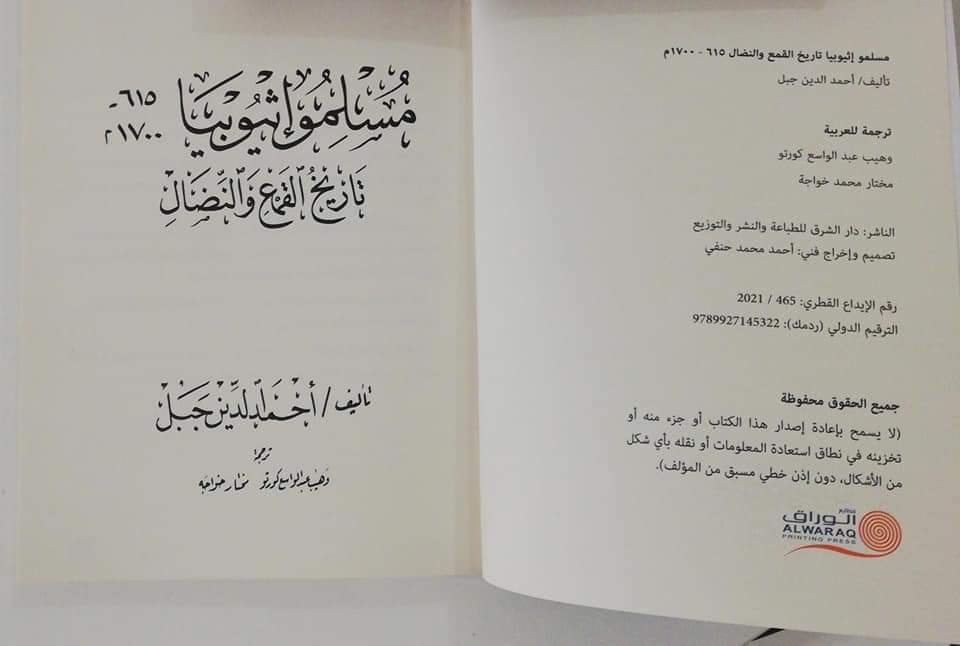 مسلمو إثيوبيا تاريخ القمع والنضال ٦١٥ - ١٧٠٠م
تأليف/ أحمد الدين جبل
ترجمة للعربية
وهيب عبد الواسع كورتو
مختار محمد خواجة
الناشر: دار الشرق للطباعة والنشر والتوزيع
تصميم وإخراج فني: أحمد محمد حنفي
رقم الإيداع القطري: 465 / 2021
الترقيم الدولي (ردمك): 9789927145322
جميع الحقوق محفوظة
(لا يسمح بإعادة إصدار هذا الكتاب أو جزء منه أو
تخزينه في نطاق استعادة المعلومات أو نقله بأي شكل
من الأشكال، دون إذن خطي مسبق من المؤلف).
مطابع
الوراق
ALWARAQ
PRINTING PRESS
مُسْلِمُو إِثْيُوبْيَا ٦١٥ - ١٧٠٠م
تَارِيخُ القَمْعِ وَالنِّضَالِ
تأليف / أحْمَد الدِّين جَبَل
ترجمة
وهيب عبد الواسع كورتو مختار خواجه